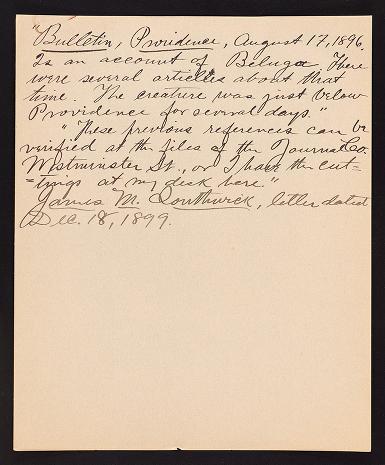 "Bulletin, Providence, August 17, 1896.
Is an account of Beluga. There
were several articles about that
time. The creature was just below
Providence for several days."
"These previous references can be
verified at the files of the Journal Co.
Westminster St., or I have the cut-
-tings at my desk here."
James M. Southwick, letter dated
Dec. 18, 1899.